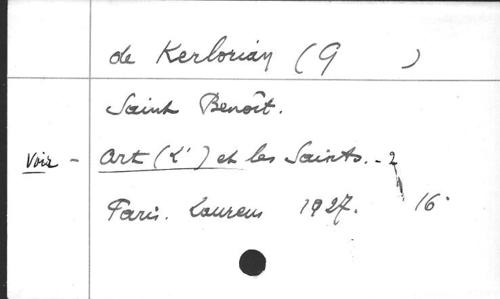 de Kerlorian (G )
Saint Benoît.
Voir - Art (L') et les Saints. - 2
Paris. Laurens 1927. 16°